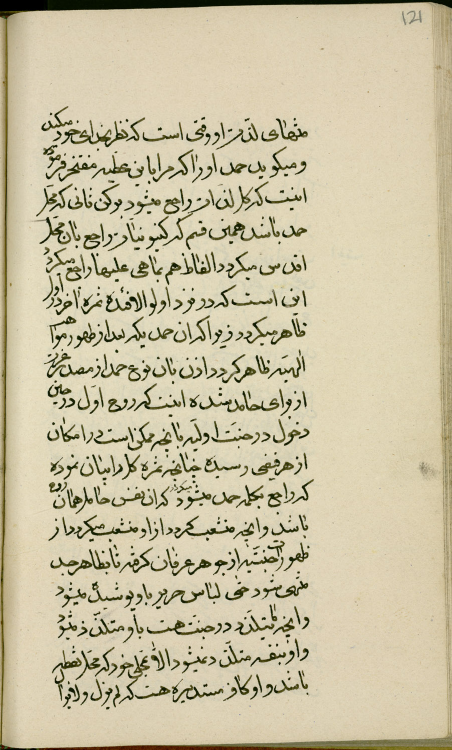 121
منتهای لذت او وقتی است که نظر بخدای خود میکند
و میکوید حمد او را که مرا باین عطیه مفتخر فرموده
اینست که کل لذات راجع میشود برکن ثانی که محل
حمد باشد همین قسم که کینونیات راجع بان محل
اقدس میکردد الفاظ هم بما هی علیها راجع میکردد
این است که در نزد اولو الافئده ثمره اخر در اول
ظاهر میکردد زیرا که ان حمدیکه بعد از ظهور
الهیه ظاهر کردد اذن بان نوع حمد از مصدر
از برای حامد شده اینست که روح اول در حین
دخول در جنت اولیه بانچه ممکن است در امکان
از هر فیضی رسیده چنانچه ثمره کل را بیان نموده
که راجع بکلمه حمد میشود که ان نفس حامل همان روح
باشد و انچه منشعب کردد از او منشعب میکردد از
ظهور از جوهر عرفان کرفته تا بظاهر جسد
منتهی شود حتی لباس حریر باو پوشیده میشود
و انچه یتلذذ در جنت هست باو متلذذ میشود
و او بنفسه متلذذ نمیشود الا بتجلی خود که محل
باشد و او کاف مستدیره هست که لم یزل و لا یزال